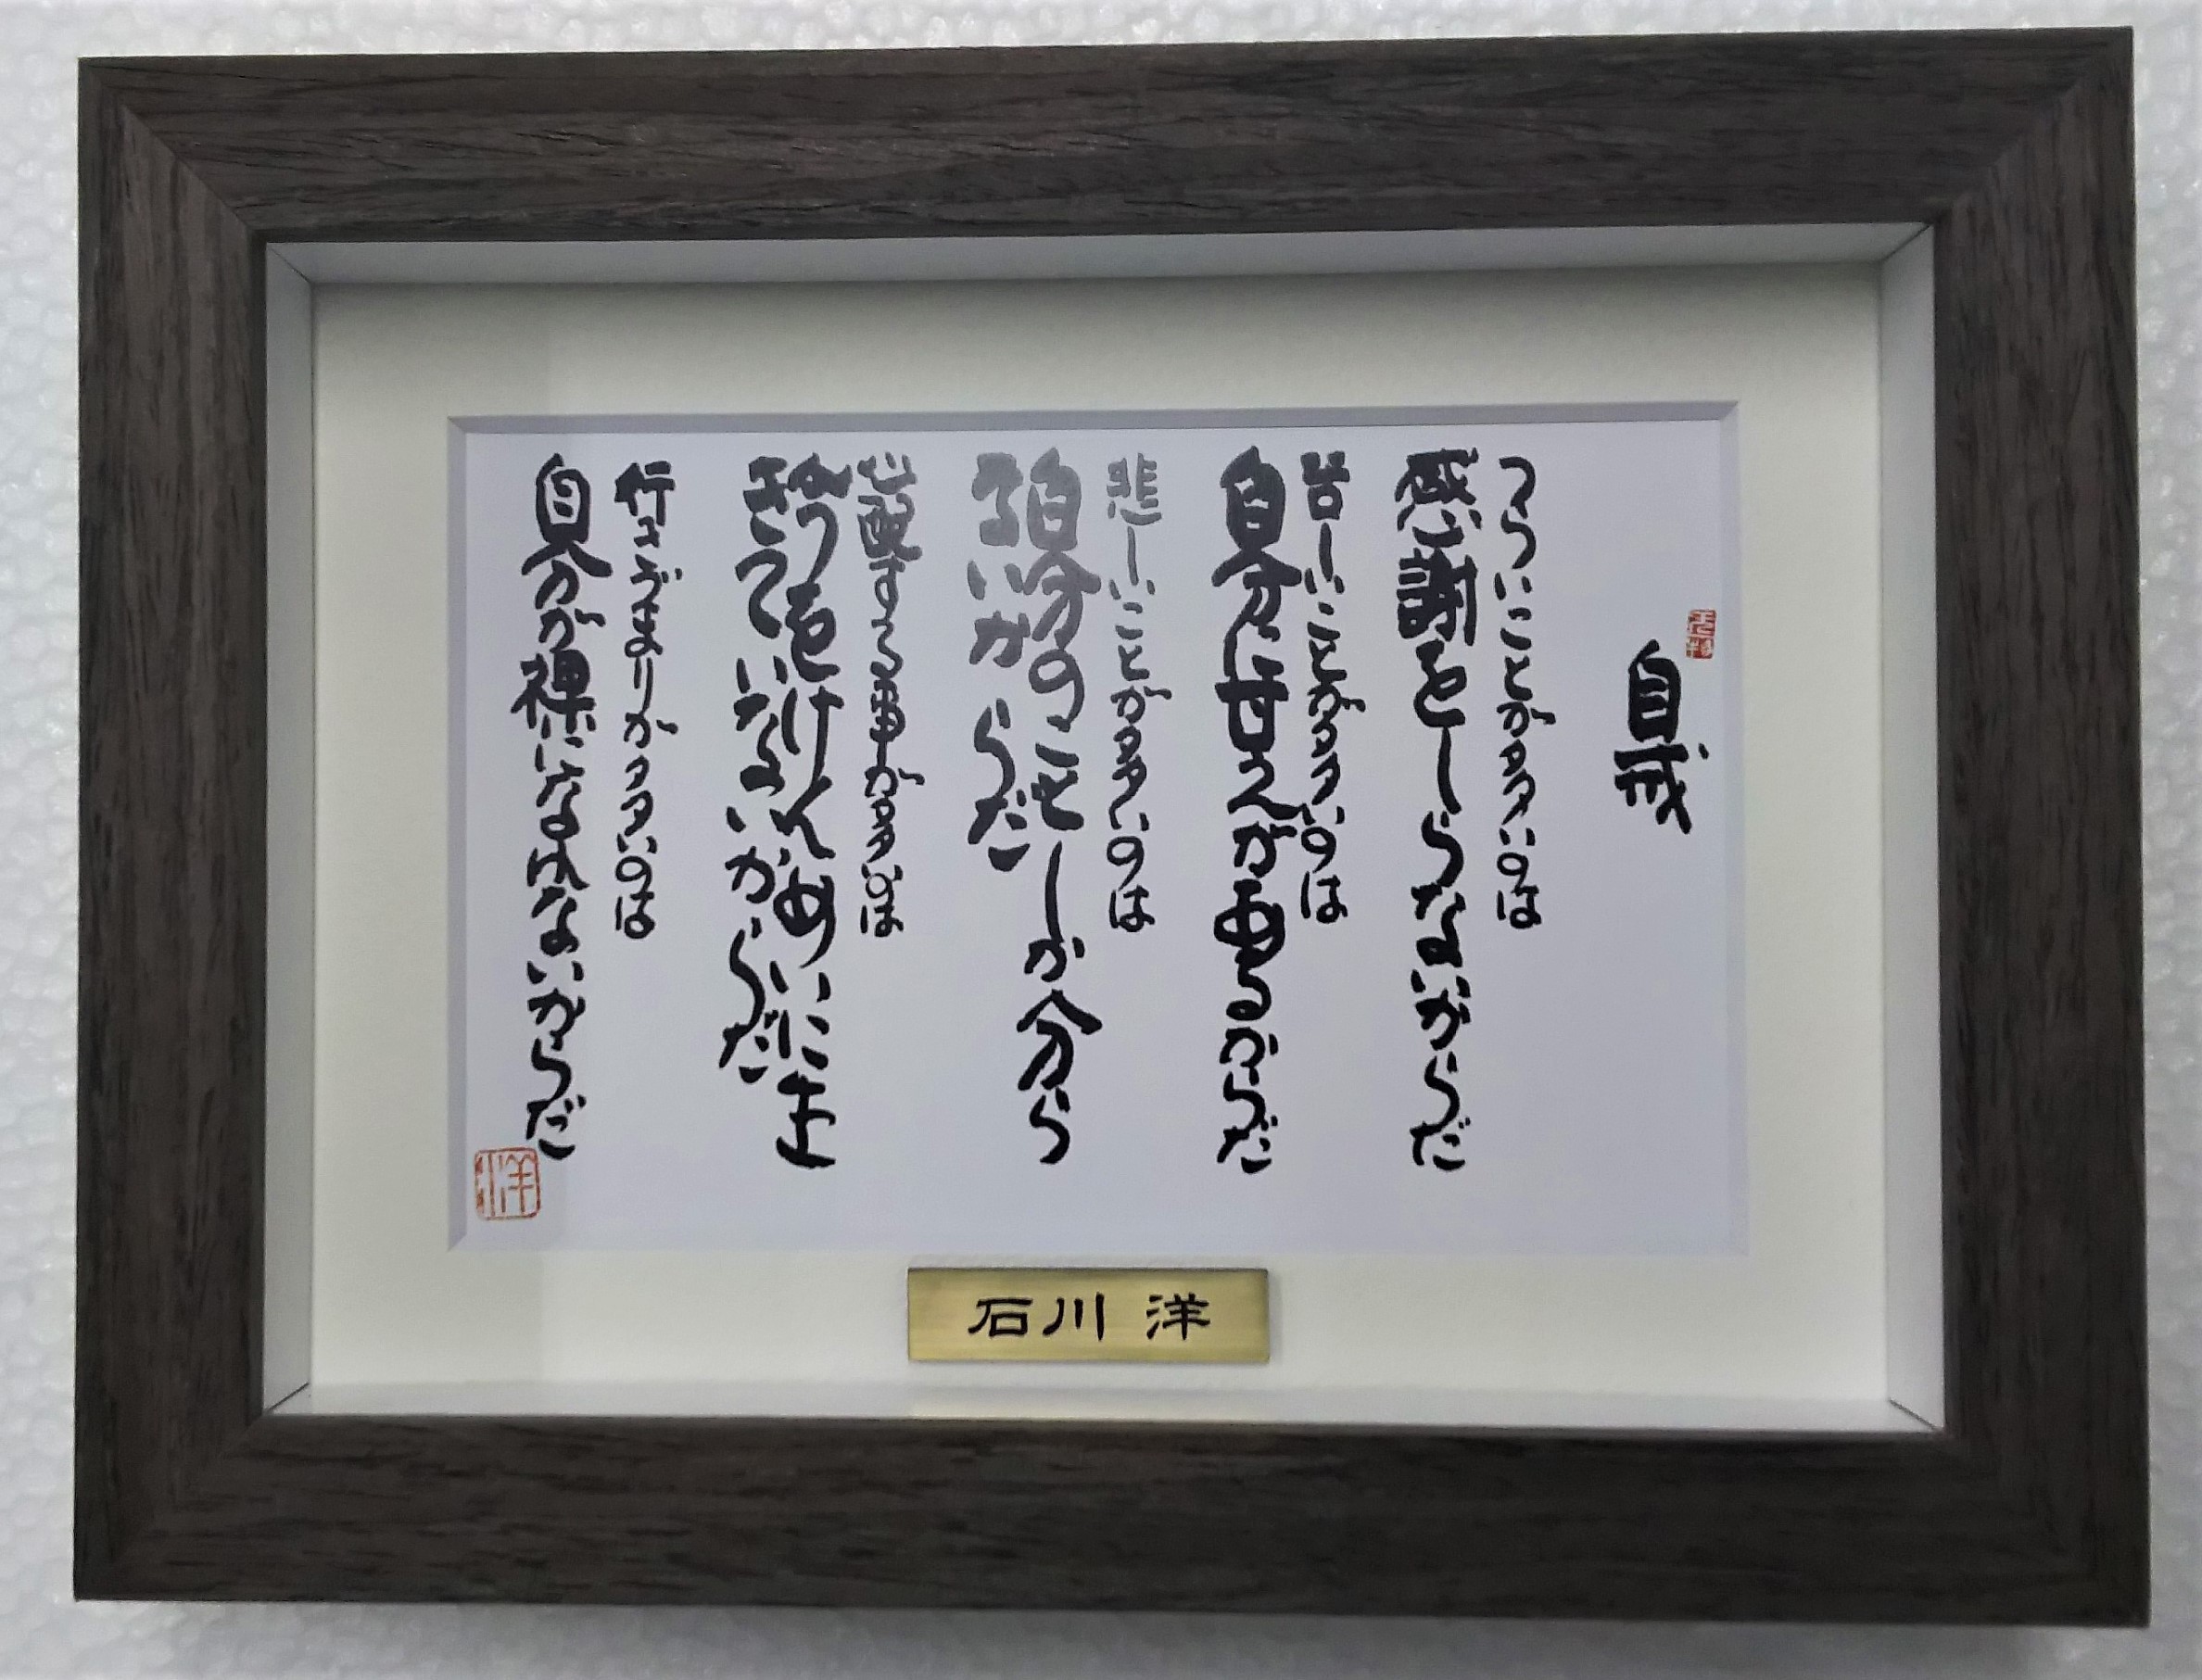 自戒
つらいことが多いのは
感謝をしらないからだ
苦しいことが多いのは
自分に甘えが有るからだ
悲しいことが多いのは
自分のことしか分ら
ないからだ
心配する事が多いのは
今をけんめいに生
きていないからだ
行きづまりが多いのは
自分が裸になれないからだ
洋
石川 洋